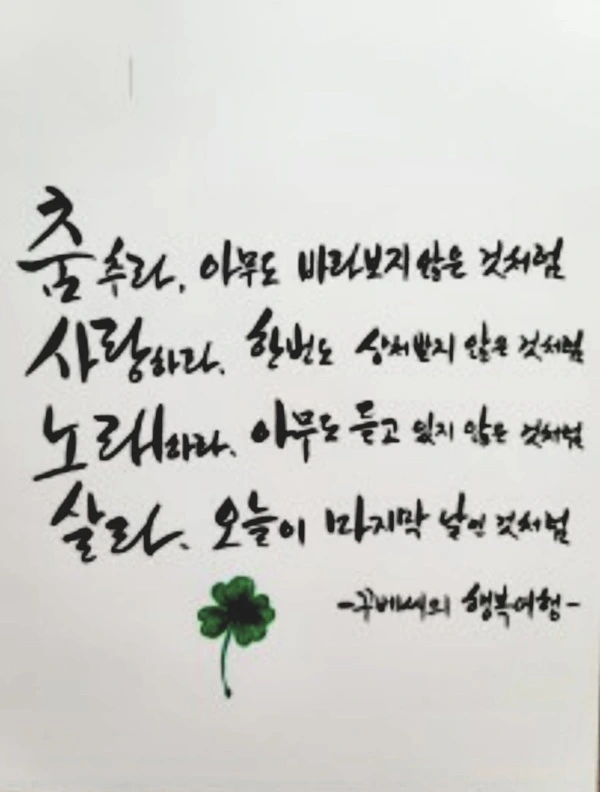 춤추라, 아무도 바라보지 않은 것처럼
사랑하라, 한번도 상처받지 않은 것처럼
노래하라, 아무도 듣고 있지 않은 것처럼
살라, 오늘이 마지막 날인 것처럼
-꾸뻬씨의 행복여행-